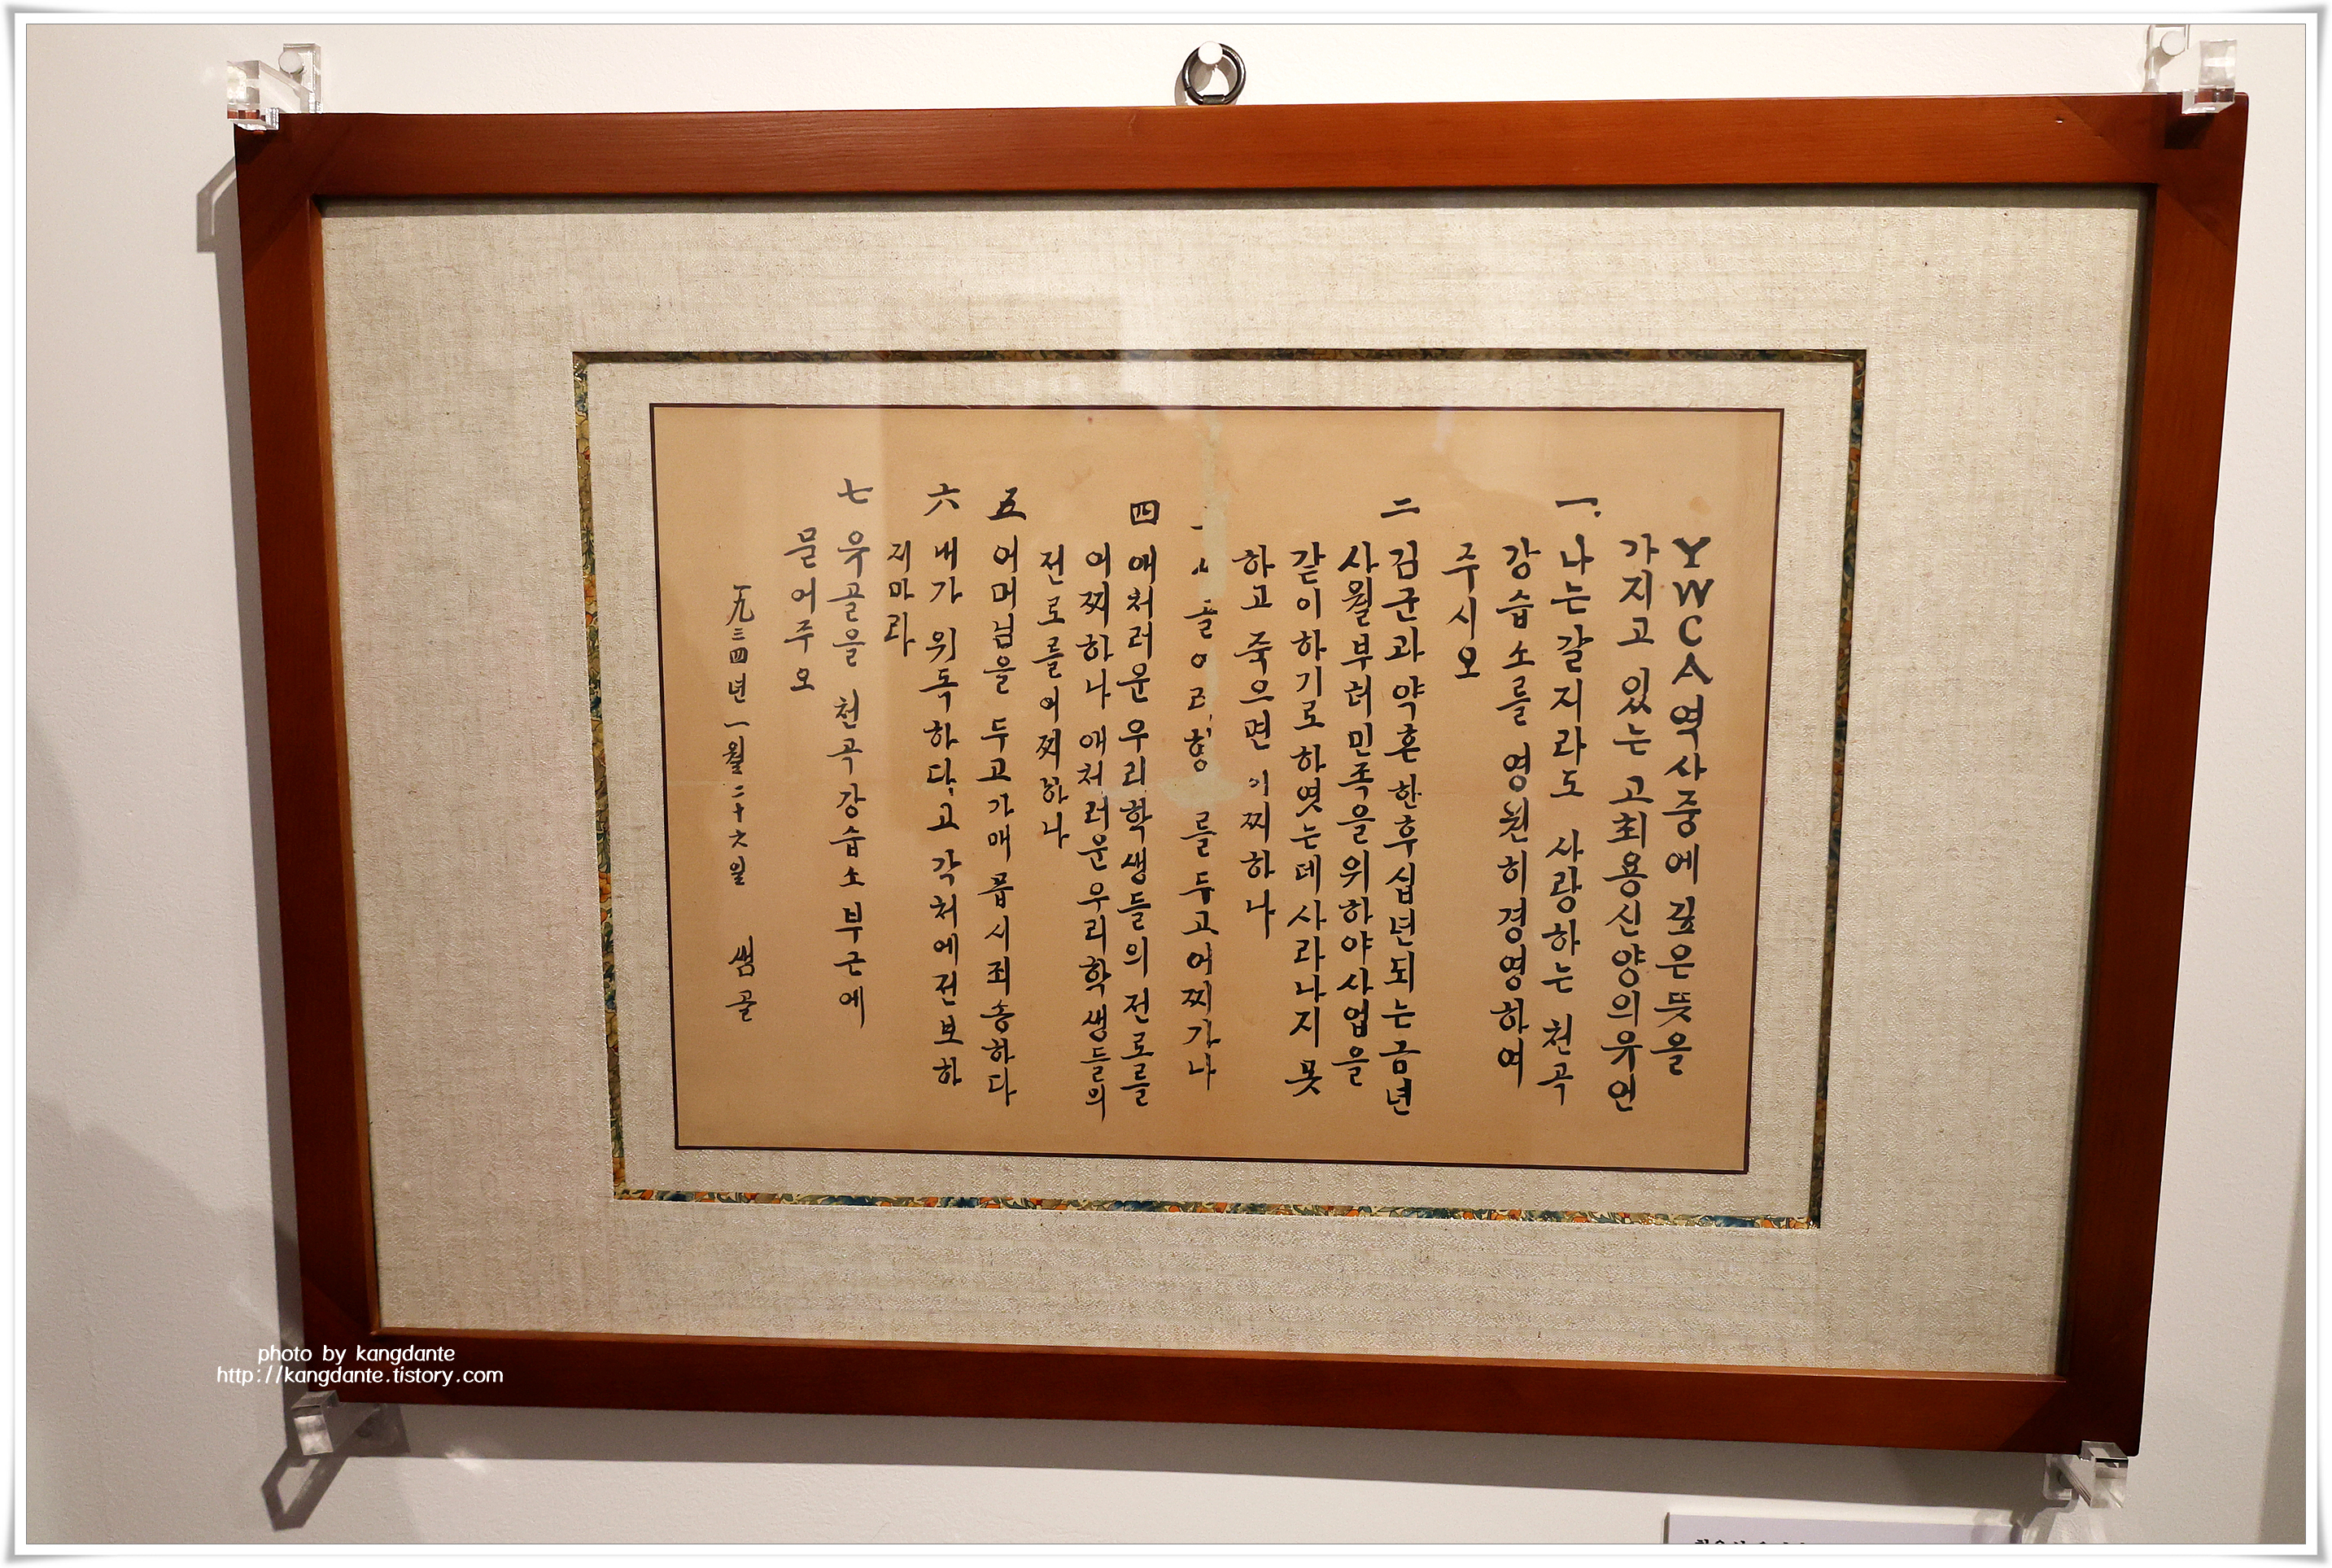 YWCA역사중에 깊은 뜻을
가지고 있는 고최용신양의유언
一. 나는갈지라도 사랑하는 천곡
강습소를 영원히경영하여
주시오
二 김군과약혼한후십년되는금년
사월부터민족을위하야사업을
같이하기로하엿는데사라나지못
하고 죽으면 어찌하나
를두고어찌가나
四 애처러운우리학생들의전로를
어찌하나 애처러운우리학생들의
전로를어찌하나
五 어머님을 두고가매 몹시죄송하다
六 내가 위독하다고 각처에전보하
지마라
七 유골을 천곡강습소부근에
묻어주오
一九三四년 一월二十六일 쌤골
photo by kangdante
http://kangdante.tistory.com